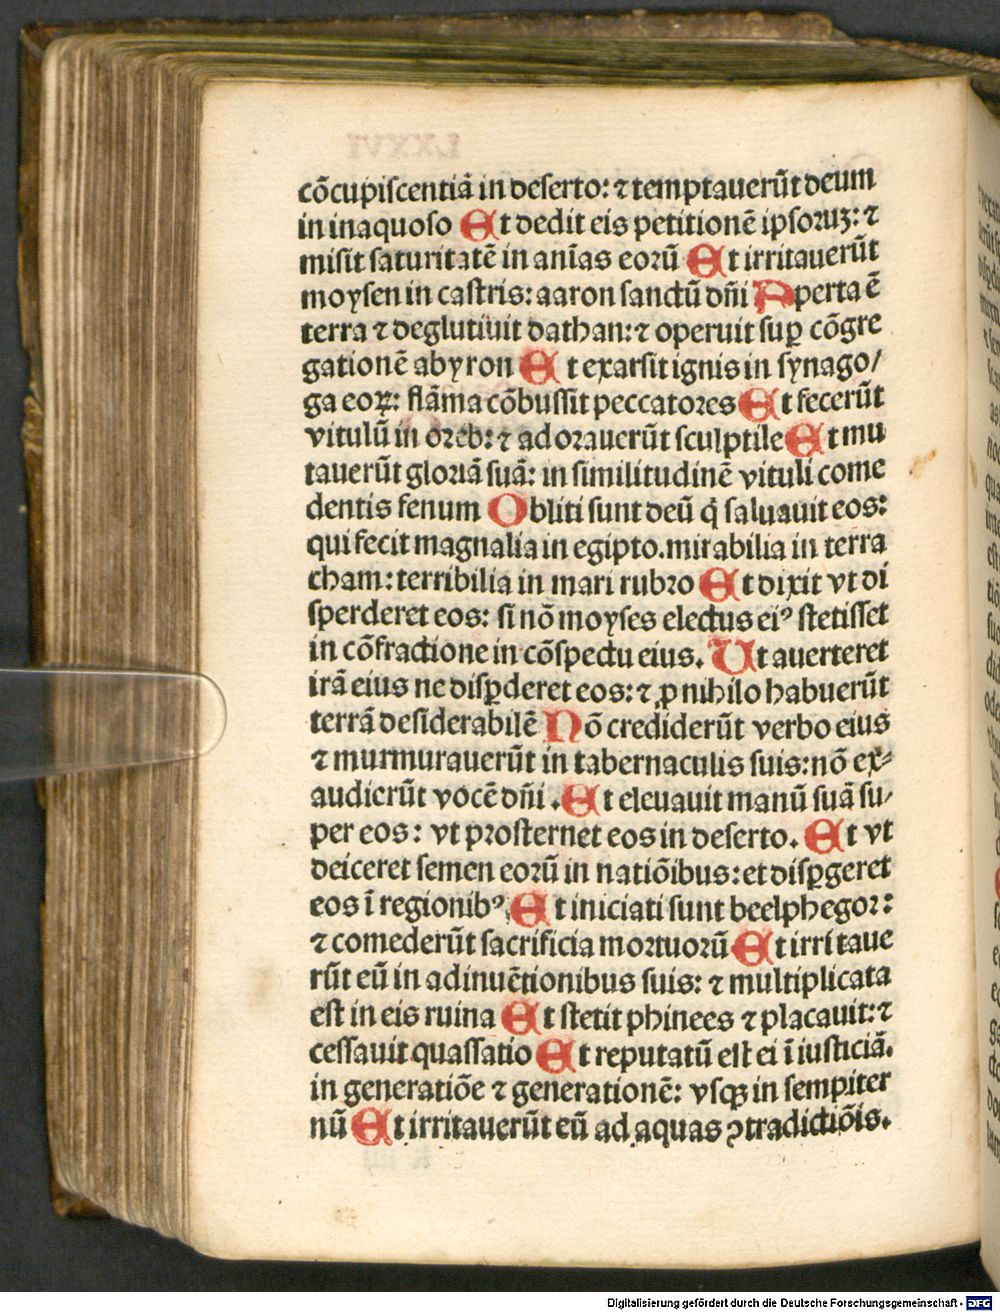 cōcupiscentiā in deserto: ⁊ temptauerūt deum
in inaquoso Et dedit eis petitionē ipsoruꝫ: ⁊
misit saturitatē in anīas eorū Et irritauerūt
moysen in castris: aaron sanctū dn̄i Aperta ē
terra ⁊ deglutiuit dathan: ⁊ operuit suꝑ cōgre
gationē abyron Et exarsit ignis in synago/
ga eoꝝ: flāma cōbussit peccatores Et fecerūt
vitulū in oreb: ⁊ adorauerūt sculptile Et mu
tauerūt gloriā suā: in similitudinē vituli come
dentis fenum Obliti sunt deū q̄ saluauit eos:
qui fecit magnalia in egipto. mirabilia in terra
cham: terribilia in mari rubro Et dixit vt di
sperderet eos: si nō moyses electus eiꝰ stetisset
in cōfractione in cōspectu eius. Ut auerteret
irā eius ne disꝑderet eos: ⁊ ꝓ nihilo habuerūt
terrā desiderabilē Nō crediderūt verbo eius
⁊ murmurauerūt in tabernaculis suis: nō ex⸗
audierūt vocē dn̄i. Et eleuauit manū suā su/
per eos: vt prosternet eos in deserto. Et vt
deiceret semen eorū in natiōibus: et disꝑgeret
eos ī regionibꝰ. Et iniciati sunt beelphegor:
⁊ comederūt sacrificia mortuorū Et irritaue
rūt eū in adinuētionibus suis: ⁊ multiplicata
est in eis ruina Et stetit phinees ⁊ placauit: ⁊
cessauit quassatio Et reputatū est ei ī iusticiā.
in generatiōe ⁊ generationē: vsqꝫ in sempiter
nū Et irritauerūt eū ad aquas ꝯtradictiōis.
Digitalisierung gefördert durch die Deutsche Forschungsgemeinschaft - DFG